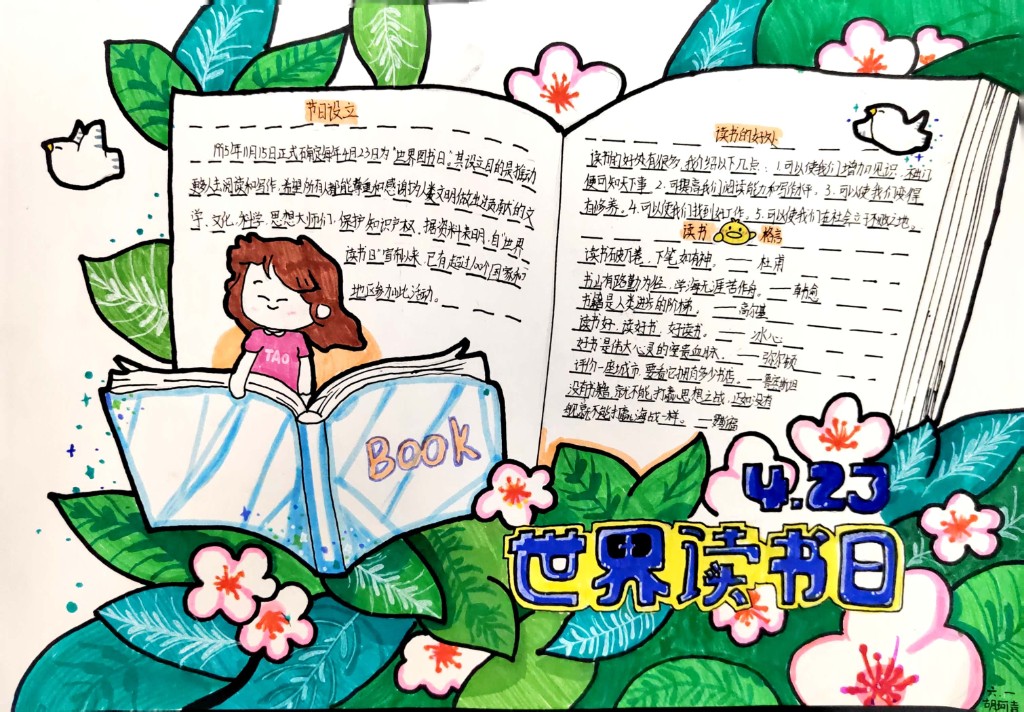 节日设立
1995年11月15日正式确定每年4月23日为"世界图书日"。其设立目的是推动
更多人去阅读和写作,希望所有人都能尊重和感谢为人类文明做出过贡献的文
学、文化、科学、思想大师们,保护知识产权。据资料表明,自"世界
读书日"宣布以来,已有超过100个国家和
地区参加此活动。
读书的好处
读书的好处有很多,我们给以下几点:1.可以使我们增加见识,
便可知天下事 2.可提高我们阅读能力和写作水平,3.可以使我们变得
有修养。4.可以使我们找到好工作。5.可以使我们在社会立于不败之地。
读书 格言
读书破万卷,下笔如有神。——杜甫
书山有路勤为径,学海无涯苦作舟。——韩愈
书籍是人类进步的阶梯。——高尔基
读书好,读好书,好读书。——冰心
好书是伟大心灵的宝贵血脉。——弥尔顿
评价一座城市,要看它拥有多少书店。
没有书籍,就不能打赢思想之战,正如没有
舰就不能打赢海战一样。——罗斯福
TAO
BOOK
4.23
世界读书日
六.一